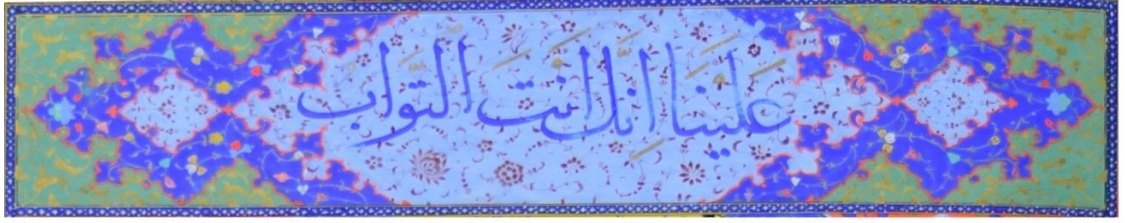 علينا انك انت التواب